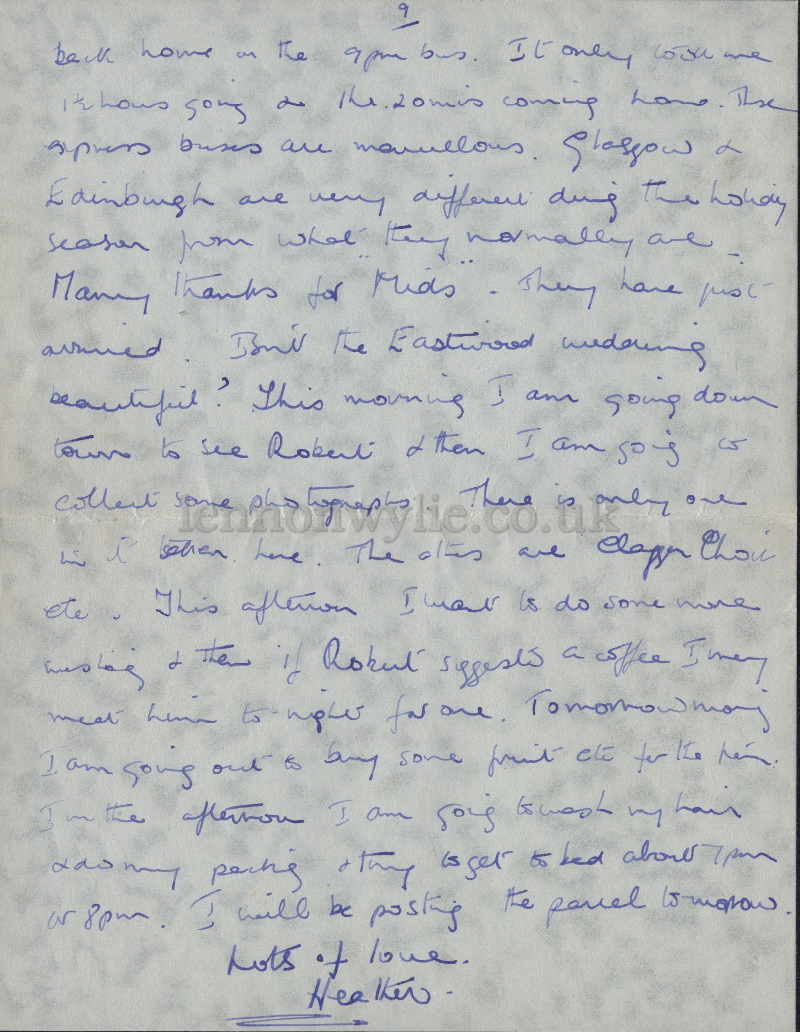 9
back home on the 9pm bus. It only took me
1½ hours going & 1hr. 20mins coming home. These
express buses are marvellous. Glasgow &
Edinburgh are very different during the holiday
season from what they normally are.
Many thanks for "Mids". They have just
arrived. Isn't the Eastwood wedding
beautiful? This morning I am going down
town to see Robert & then I am going to
collect some photographs. There is only one
in it taken here. The others are Clapper Choir
etc. This afternoon I want to do some more
washing & then if Robert suggests a coffee I may
meet him to-night for one. Tomorrow morning
I am going out to buy some fruit etc for the
In the afternoon I am going to wash my hair
& do my packing & try to get to bed about 7pm
or 8pm. I will be posting the parcel tomorrow.
Lots of love.
Heather.
lennonwylie.co.uk